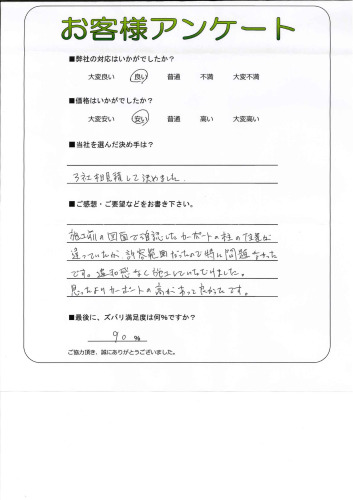 お客様アンケート
■弊社の対応はいかがでしたか?
大変良い 良い 普通 不満 大変不満
■価格はいかがでしたか?
大変安い 安い 普通 高い 大変高い
■当社を選んだ決め手は?
3社相見積して決めました.
■ご感想・ご要望などをお書き下さい。
施工前の図面で確認したカーポートの柱の位置が
違っていたが、許容範囲だったので特に問題なかった
です。違和感なく施工していただけました。
思ったよりカーポートの高があって良かったです。
■最後に、ズバリ満足度は何%ですか?
90 %
ご協力頂き、誠にありがとうございました。